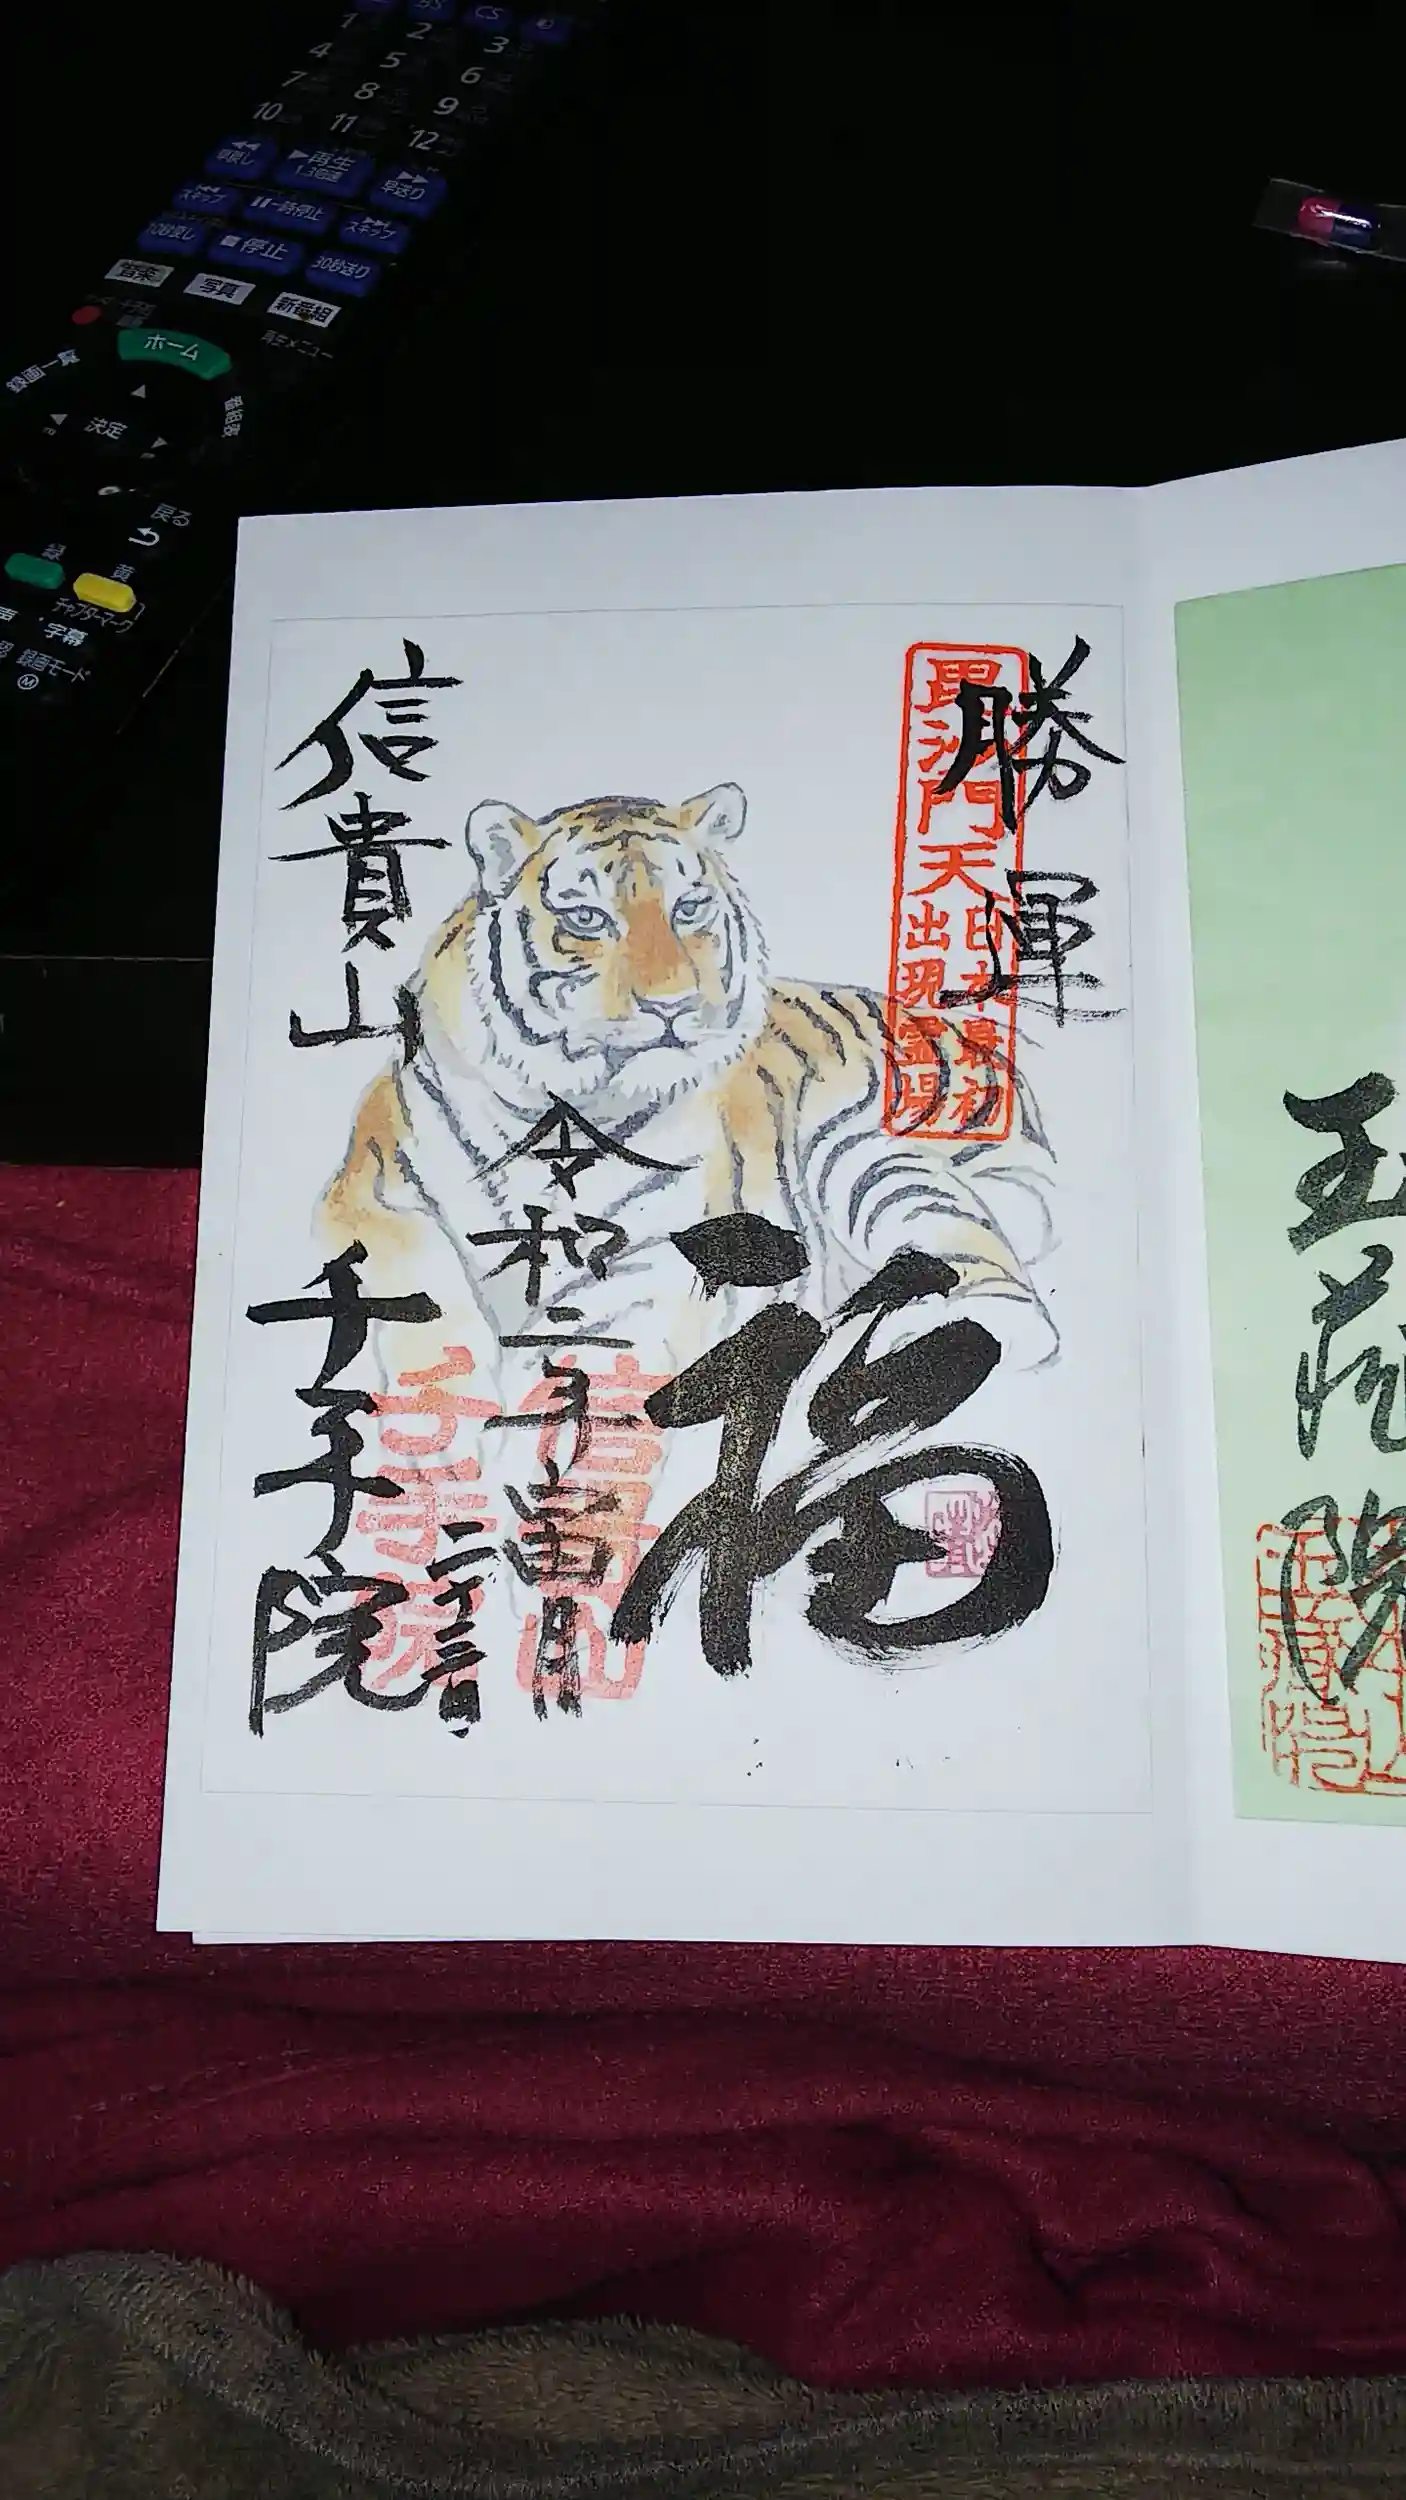 BS CS
1 2 3
4 5 6
7 8 9
10 11 12
早戻し 再生 早送り
1.3倍速
スキップ 一時停止 スキップ
10秒戻し 停止 30秒送り
音楽 写真 新番組
再生メニュー
ホーム
録画一覧 番組表
決定
戻る
緑 黄
チャプターマーク
字幕
録画モード
勝運
毘沙門天
日本最初
出現霊場
福
令和二年
二十三日
信貴山
千手院
信貴山
千手院
玉蔵院
玉蔵院